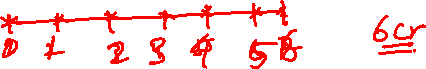 0 1 2 3 4 5 6 6cr